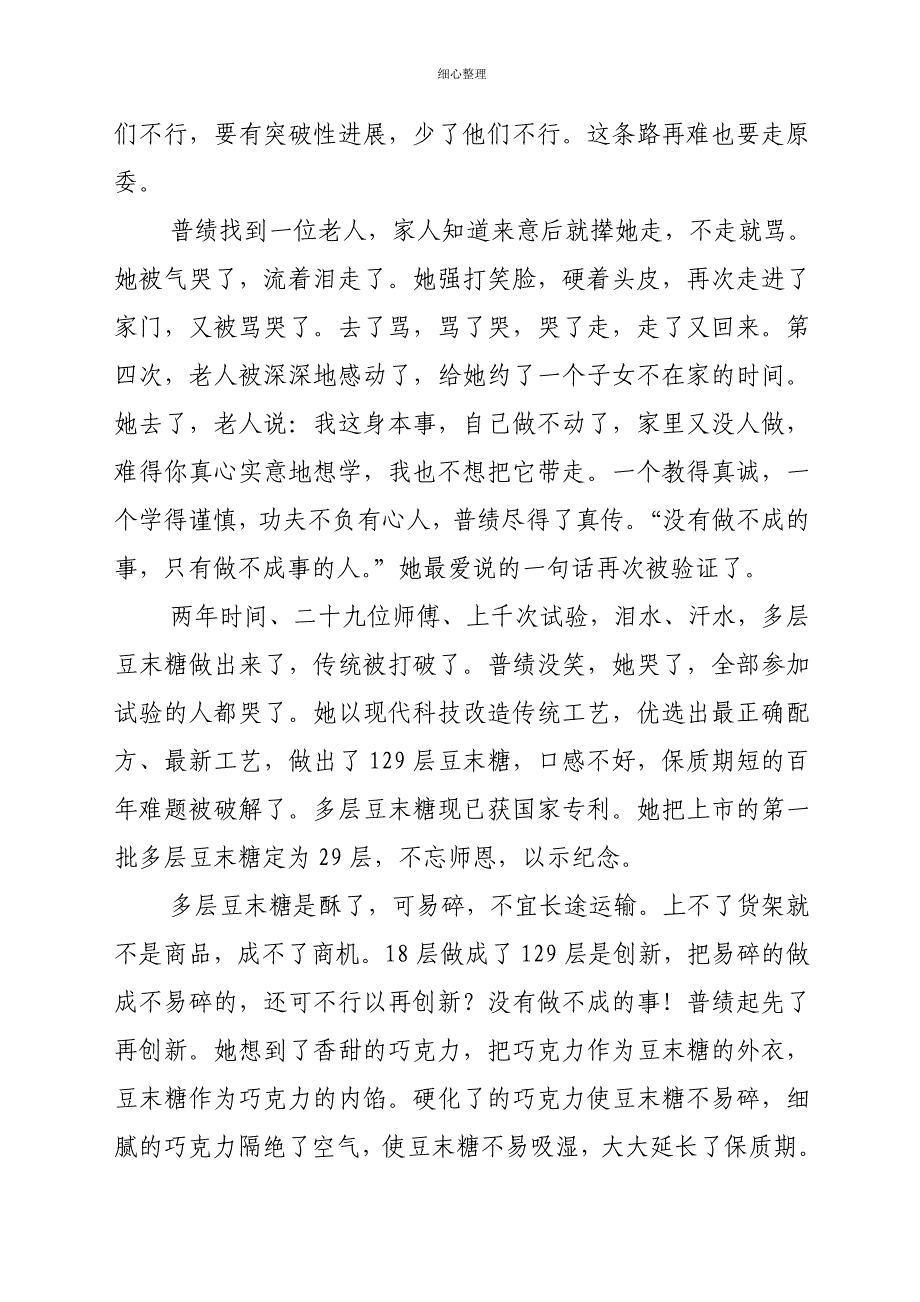 细心整理
们不行，要有突破性进展，少了他们不行。这条路再难也要走原
委。
普绩找到一位老人，家人知道来意后就撵她走，不走就骂。
她被气哭了，流着泪走了。她强打笑脸，硬着头皮，再次走进了
家门，又被骂哭了。去了骂，骂了哭，哭了走，走了又回来。第
四次，老人被深深地感动了，给她约了一个子女不在家的时间。
她去了，老人说：我这身本事，自己做不动了，家里又没人做，
难得你真心实意地想学，我也不想把它带走。一个教得真诚，一
个学得谨慎，功夫不负有心人，普绩尽得了真传。“没有做不成的
事，只有做不成事的人。”她最爱说的一句话再次被验证了。
两年时间、二十九位师傅、上千次试验，泪水、汗水，多层
豆末糖做出来了，传统被打破了。普绩没笑，她哭了，全部参加
试验的人都哭了。她以现代科技改造传统工艺，优选出最正确配
方、最新工艺，做出了 129 层豆末糖，口感不好，保质期短的百
年难题被破解了。多层豆末糖现已获国家专利。她把上市的第一
批多层豆末糖定为 29 层，不忘师恩，以示纪念。
多层豆末糖是酥了，可易碎，不宜长途运输。上不了货架就
不是商品，成不了商机。18 层做成了 129 层是创新，把易碎的做
成不易碎的，还可不行以再创新？没有做不成的事！普绩起先了
再创新。她想到了香甜的巧克力，把巧克力作为豆末糖的外衣，
豆末糖作为巧克力的内馅。硬化了的巧克力使豆末糖不易碎，细
腻的巧克力隔绝了空气，使豆末糖不易吸湿，大大延长了保质期。